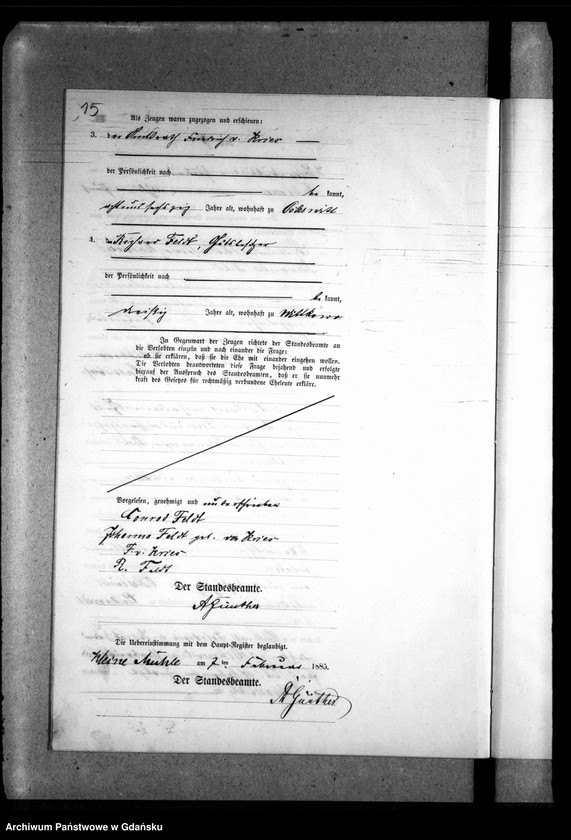 15
Als Zeugen waren zugezogen und erschienen:
3. der Friedrich v. Kries
der Persönlichkeit nach
be kannt,
achtundsechszig Jahre alt, wohnhaft zu
4. der Feldt, Gutsbesitzer
der Persönlichkeit nach
be kannt,
dreißig Jahre alt, wohnhaft zu
In Gegenwart der Zeugen richtete der Standesbeamte an
die Verlobten einzeln und nach einander die Frage:
ob sie erklären, daß sie die Ehe mit einander eingehen wollen.
Die Verlobten beantworteten diese Frage bejahend und erfolgte
hierauf der Ausspruch des Standesbeamten, daß er sie nunmehr
kraft des Gesetzes für rechtmäßig verbundene Eheleute erkläre.
Vorgelesen, genehmigt und unterschrieben
Conrad Feldt
Johanna Feldt geb. von Kries
F. v. Kries
R. Feldt
Der Standesbeamte.
A Günther
Die Uebereinstimmung mit dem Haupt-Register beglaubigt.
Kleine Mühle am 7ten Februar 1885.
Der Standesbeamte.
A Günther
Archiwum Państwowe w Gdańsku